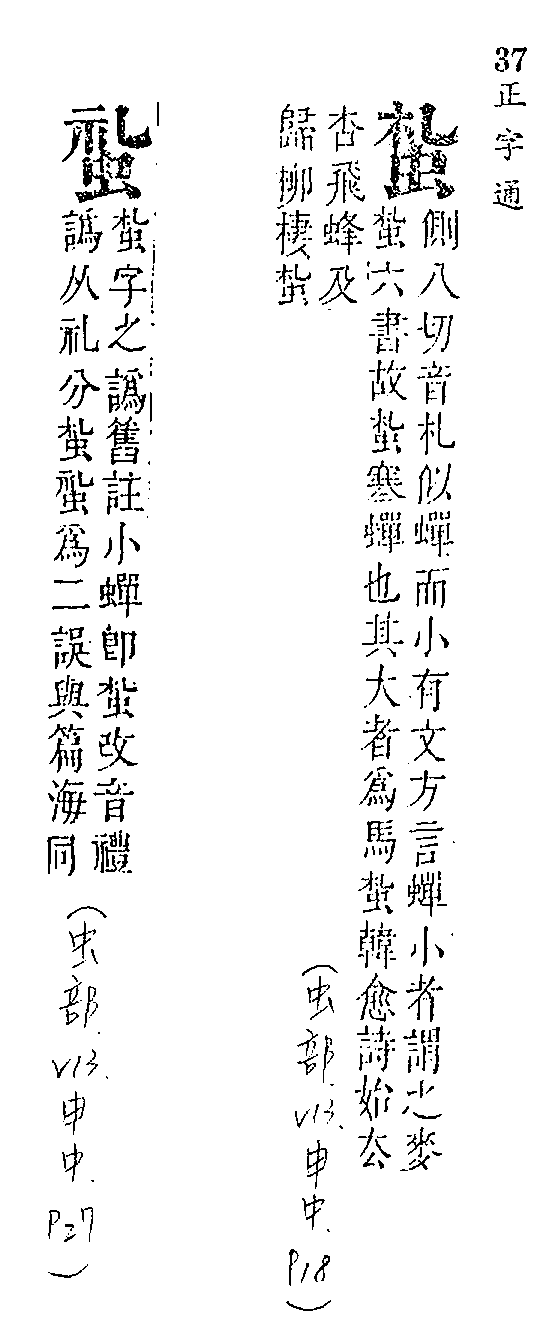 37 正字通
蚻
側八切音札似蟬而小有文方言蟬小者謂之麥
蚻六書故蚻寒蟬也其大者爲馬蚻韓愈詩始去
杏飛蜂及
歸柳棲蚻
(虫部. V13. 申中. P18)
蚻字之譌舊註小蟬卽蚻改音禮
譌从礼分蚻爲二誤與篇海同
(虫部. V13. 申中. P27)